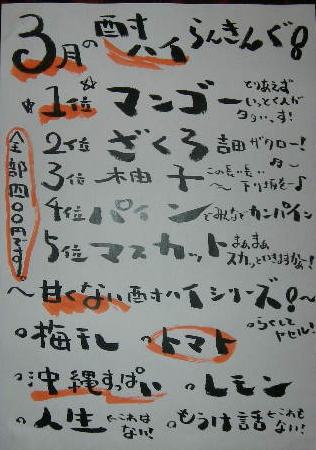 3月の酎ハイらんきんぐ!
1位 マンゴー とりあえずいっとく人がタタいっす!
2位 ざくろ 吉田ザクロー!
3位 柚子 この長い長い〜下り坂を〜♪
4位 パイン でみんなでカンパイン
5位 マスカット まぁまぁスカッといきますかー!
全部四〇〇円です。
〜甘くない酎ハイシリーズ!〜
梅干し
トマト
らくしてヤセル!
沖縄すっぱい
レモン
人生 ←これはない!
もうけ話 ←これもない!